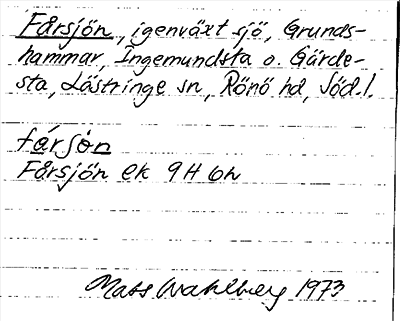 Fårsjön, igenväxt sjö, Grunds-
hammar, Ingemundsta o. Gärde-
sta, Lästringe sn, Rönö hd, Söd.l.
fårsjön
Fårsjön ek 9H 6h
Mats Wahlberg 1973